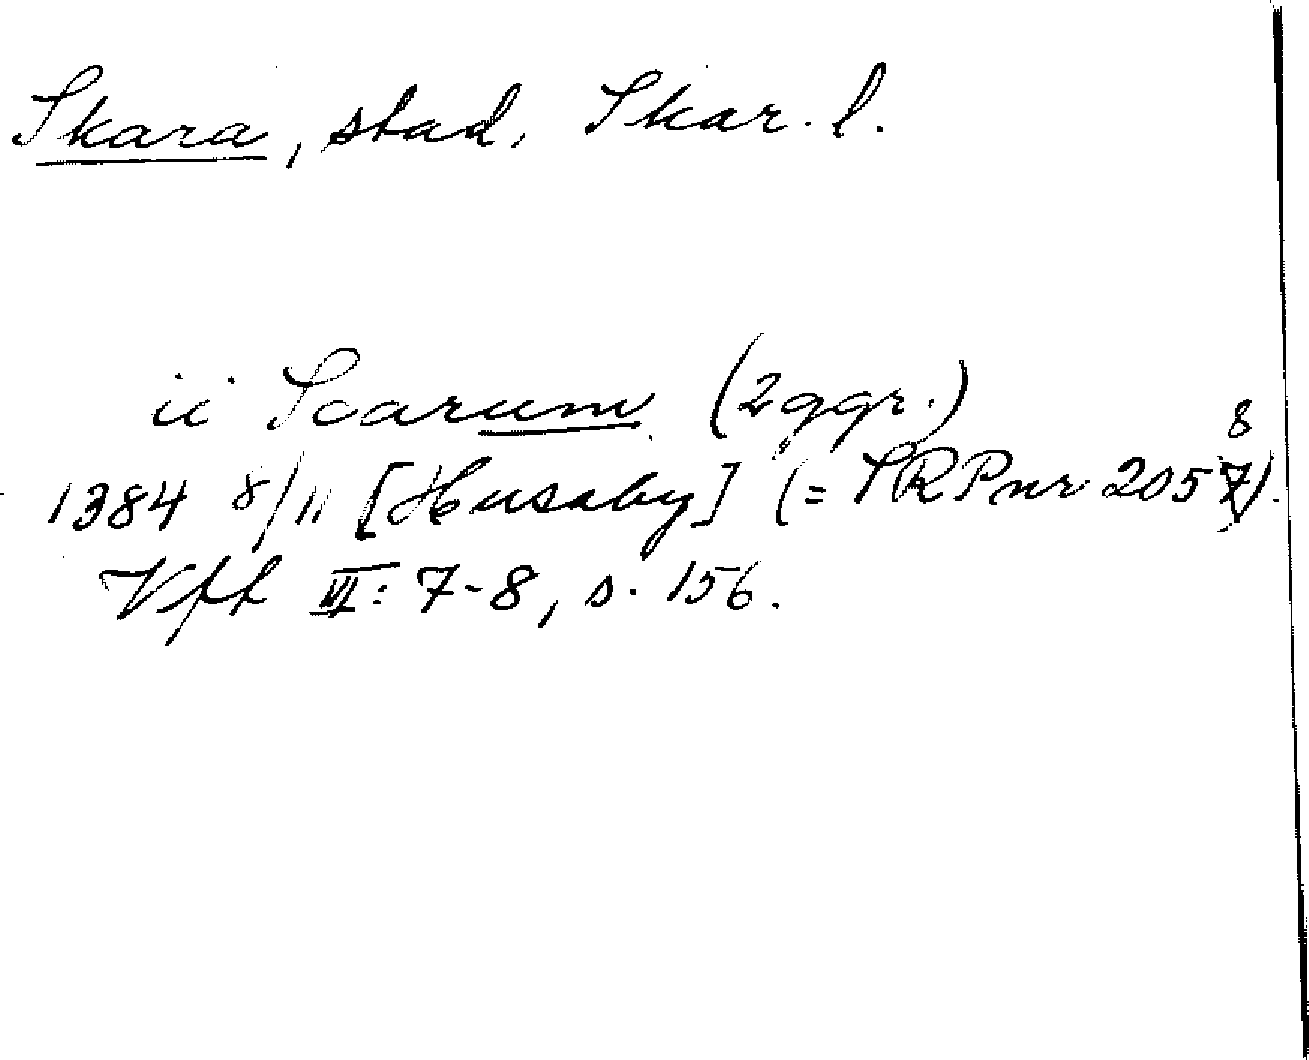 Skara, stad, Skar. l.
ii Scarum (2 ggr.)
8
1384 8/11 [Husaby] (= SRP nr 2057).
Vff VI: 7-8, s. 156.